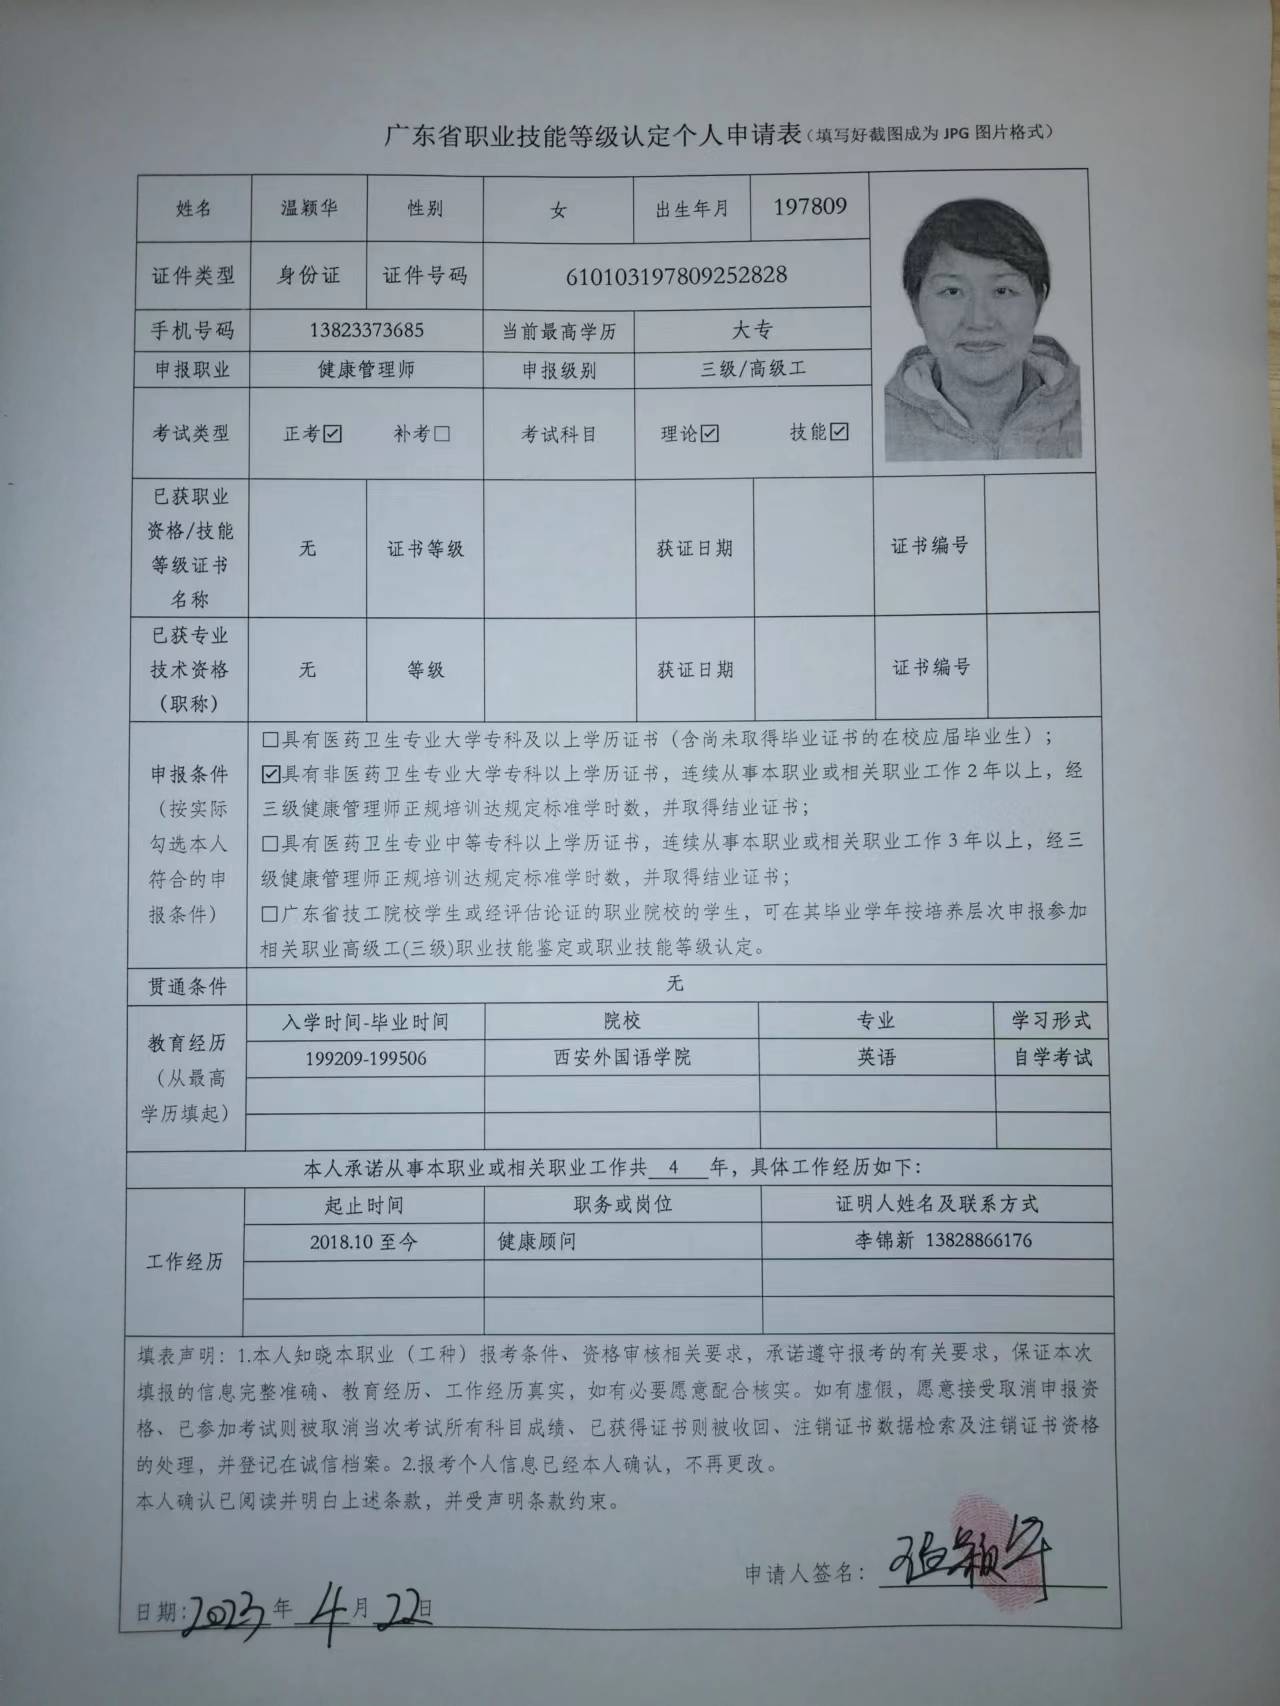 广东省职业技能等级认定个人申请表（填写好截图成为 JPG 图片格式）
姓名 温颖华 性别 女 出生年月 197809
证件类型 身份证 证件号码 610103197809252828
手机号码 13823373685 当前最高学历 大专
申报职业 健康管理师 申报级别 三级/高级工
考试类型 正考☑ 补考□ 考试科目 理论☑ 技能☑
已获职业
资格/技能
等级证书
名称
无 证书等级 获证日期 证书编号
已获专业
技术资格
（职称）
无 等级 获证日期 证书编号
申报条件
（按实际
勾选本人
符合的申
报条件）
□具有医药卫生专业大学专科及以上学历证书（含尚未取得毕业证书的在校应届毕业生）；
☑具有非医药卫生专业大学专科以上学历证书，连续从事本职业或相关职业工作 2 年以上，经
三级健康管理师正规培训达规定标准学时数，并取得结业证书；
□具有医药卫生专业中等专科以上学历证书，连续从事本职业或相关职业工作 3 年以上，经三
级健康管理师正规培训达规定标准学时数，并取得结业证书；
□广东省技工院校学生或经评估论证的职业院校的学生，可在其毕业学年按培养层次申报参加
相关职业高级工(三级)职业技能鉴定或职业技能等级认定。
贯通条件 无
教育经历
（从最高
学历填起）
入学时间-毕业时间 院校 专业 学习形式
199209-199506 西安外国语学院 英语 自学考试
本人承诺从事本职业或相关职业工作共 4 年，具体工作经历如下：
工作经历
起止时间 职务或岗位 证明人姓名及联系方式
2018.10 至今 健康顾问 李锦新 13828866176
填表声明：1.本人知晓本职业（工种）报考条件、资格审核相关要求，承诺遵守报考的有关要求，保证本次
填报的信息完整准确、教育经历、工作经历真实，如有必要愿意配合核实。如有虚假，愿意接受取消申报资
格、已参加考试则被取消当次考试所有科目成绩、已获得证书则被收回、注销证书数据检索及注销证书资格
的处理，并登记在诚信档案。2.报考个人信息已经本人确认，不再更改。
本人确认已阅读并明白上述条款，并受声明条款约束。
申请人签名： 温颖华
日期：2023 年 4 月 22 日